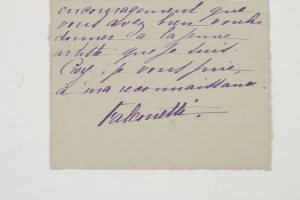 encouragement que
vous avez bien voulu
donner à la jeune
artiste que je suis.
Croyez, je vous prie,
à ma reconnaissance
Falconetti.